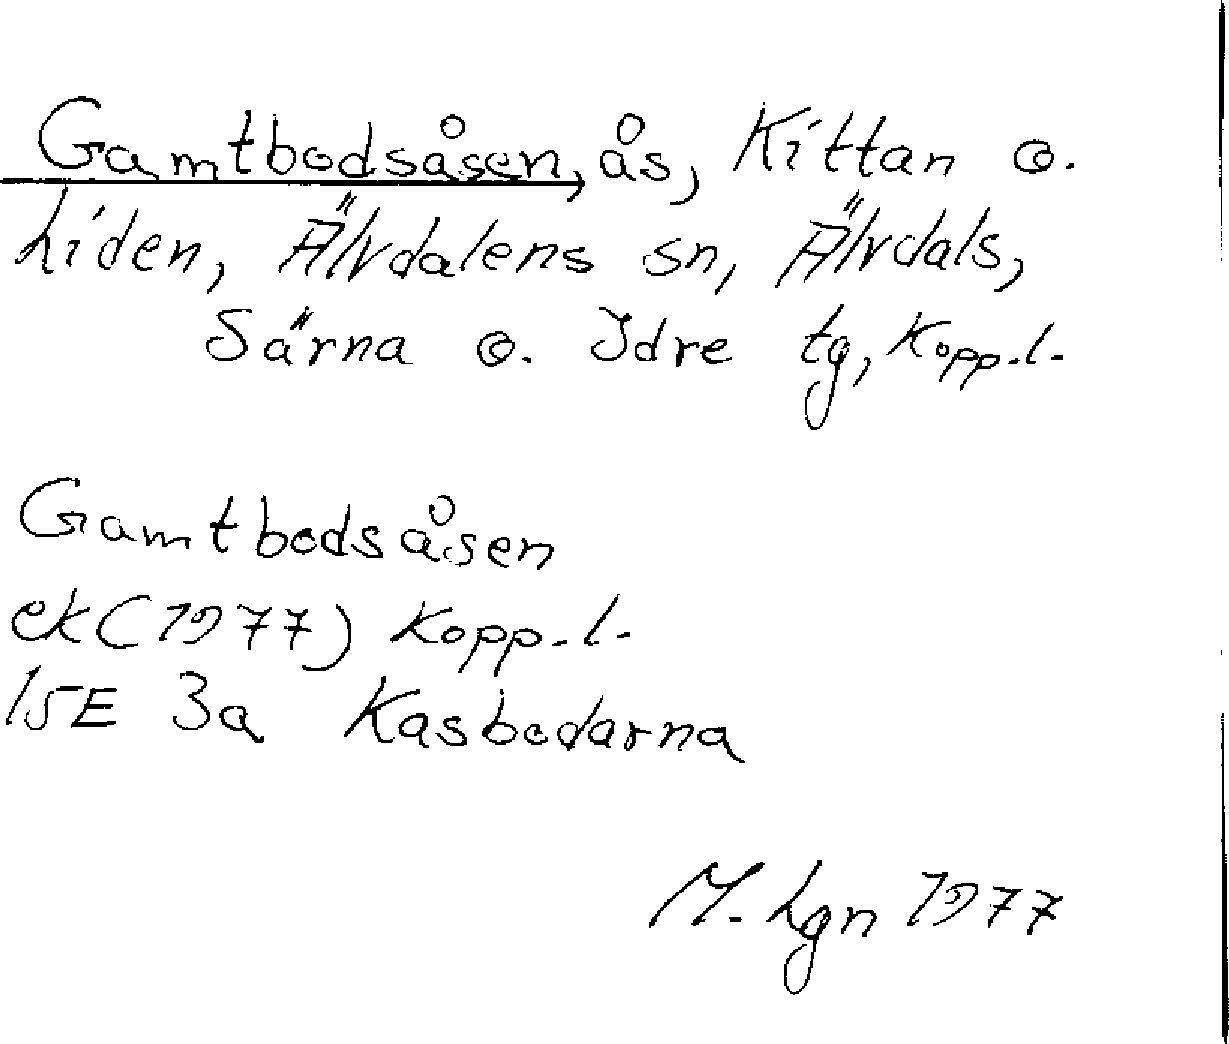 Gamtbodsåsen, ås, Kittan o.
Liden, Älvdalens sn, Älvdals,
Särna o. Idre tg, Kopp.l.
Gamtbodsåsen
ek (1977) Kopp.l.
15E 3a Kasbodarna
M. Lgn 1977